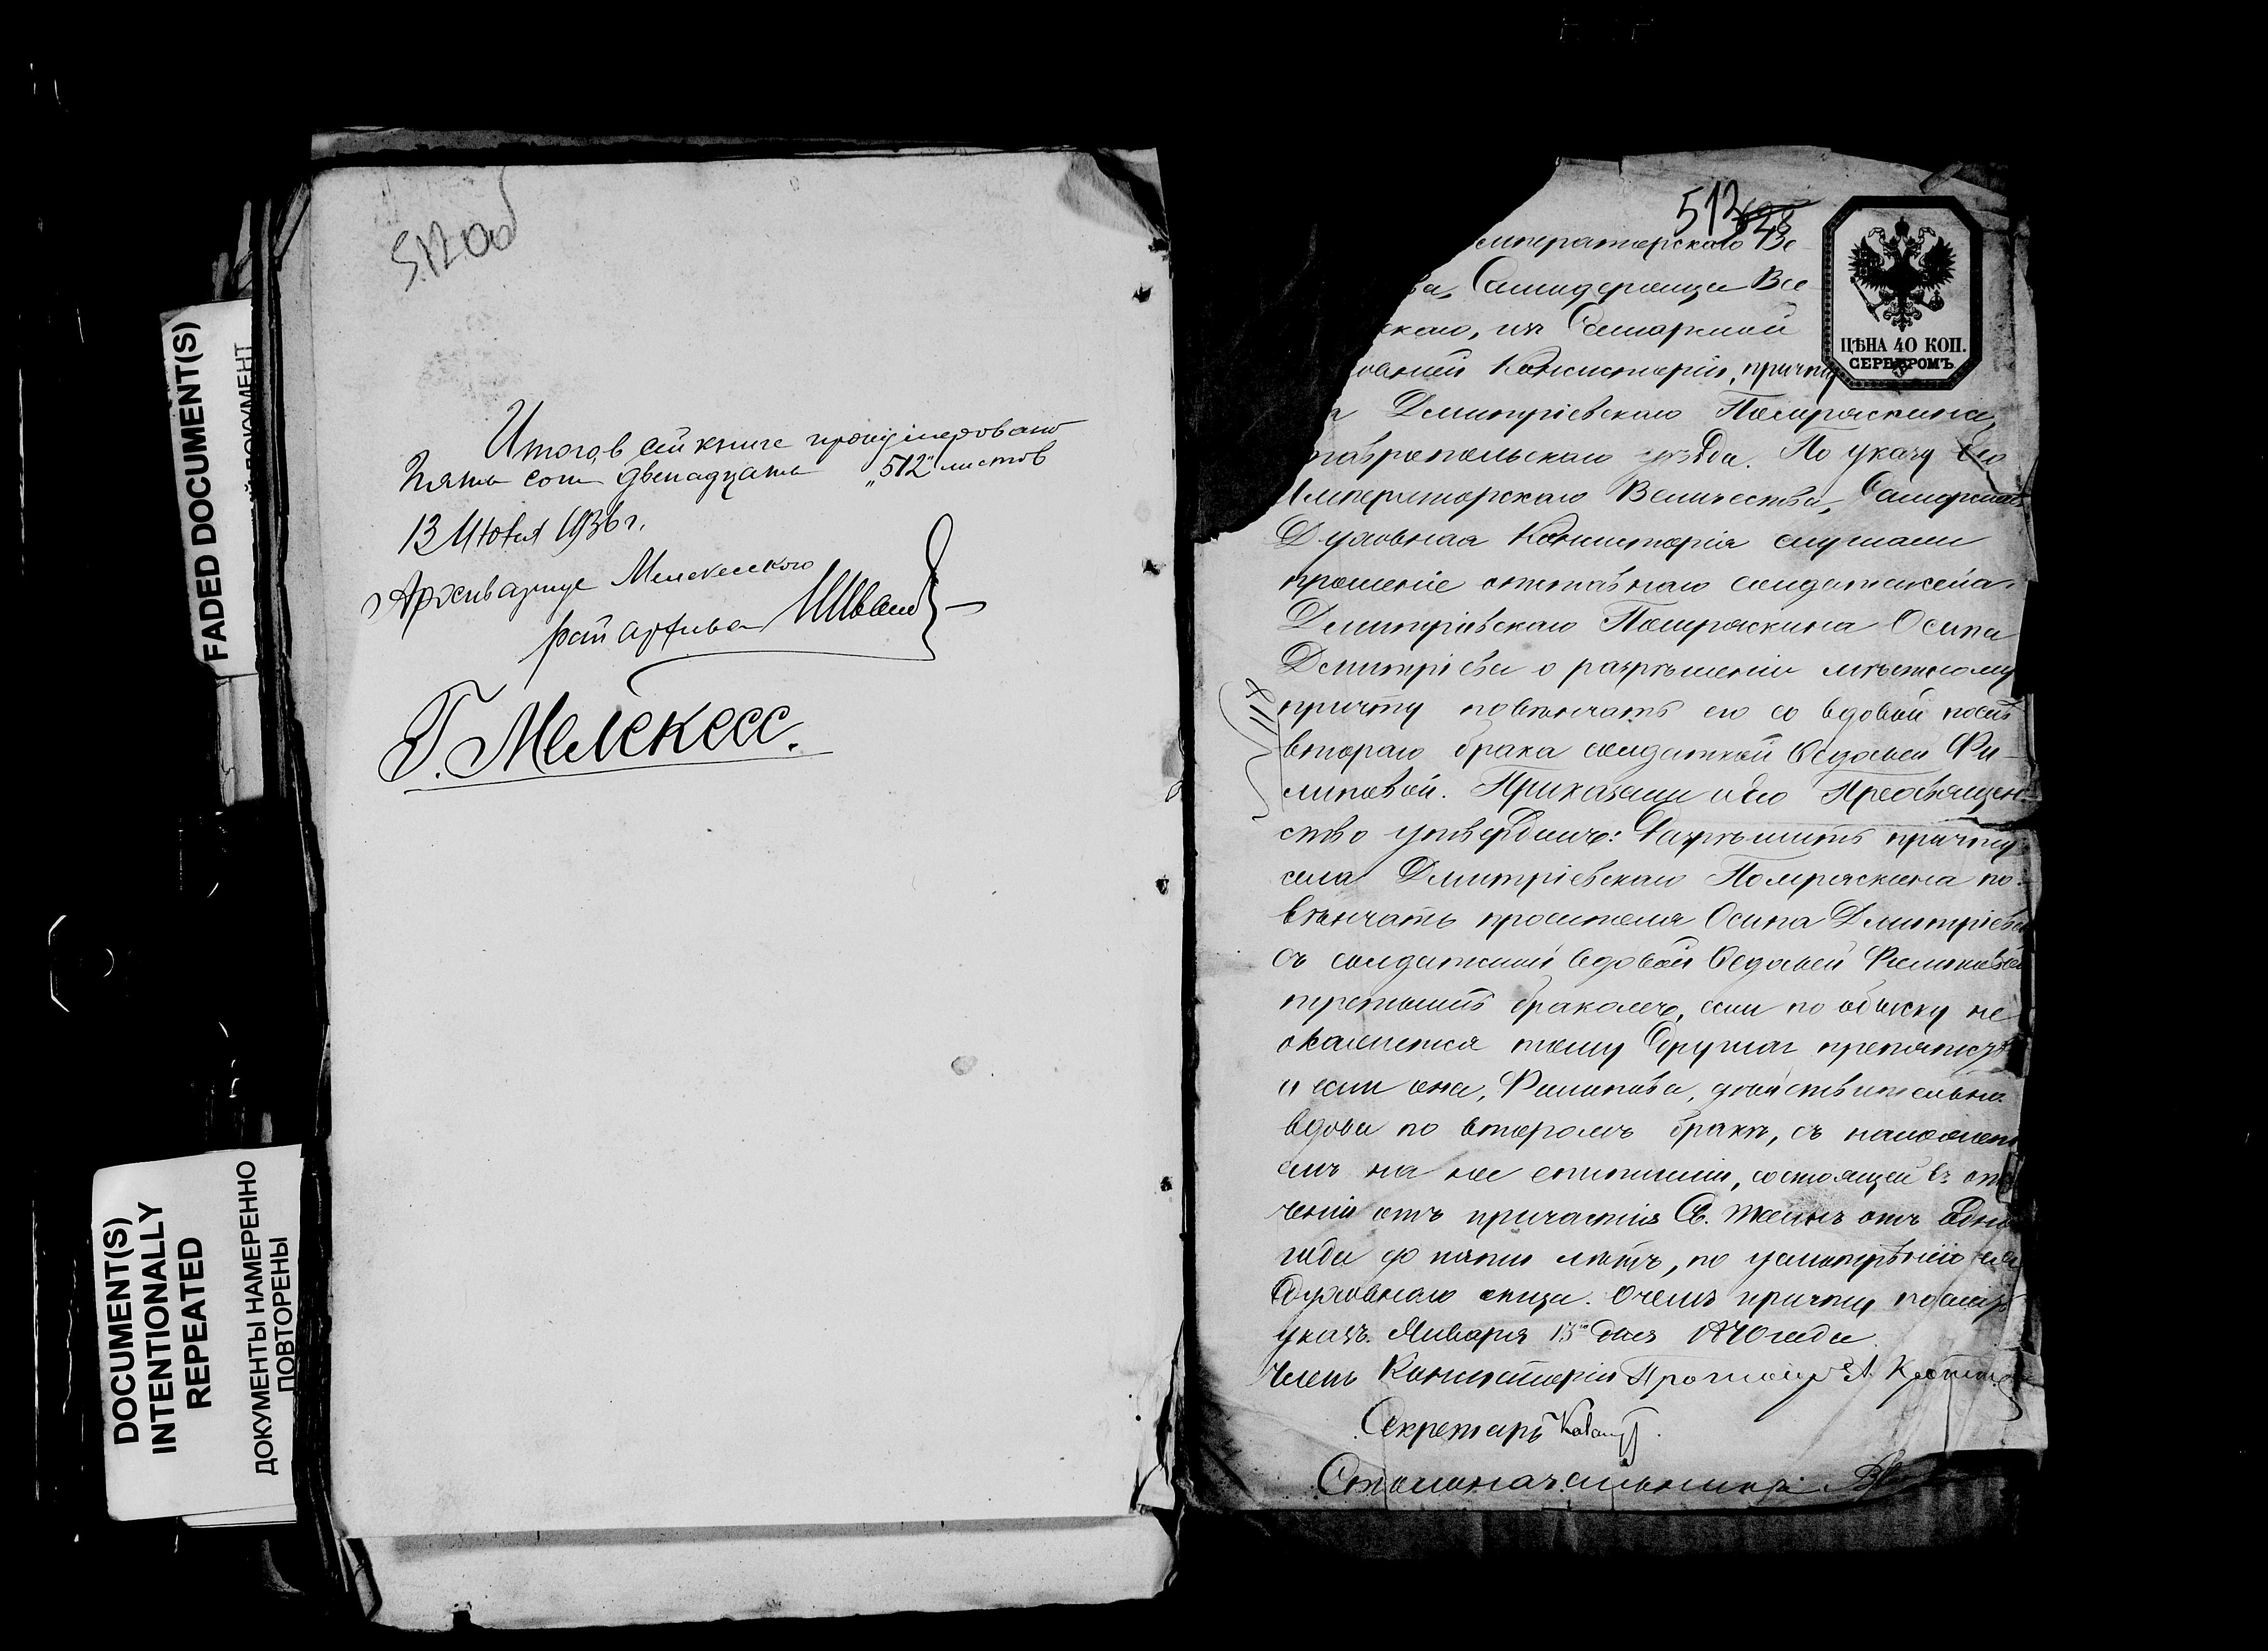 FADED DOCUMENT(S)
DOCUMENT(S)
INTENTIONALLY
REPEATED
ДОКУМЕНТЫ НАМЕРЕННО
ПОВТОРЕНЫ
512 об
Итого в сей книге пронумеровано
Пять сот двенадцать „512" листов
13 Июня 1936 г.
Архивариус Мелекесского
рай архива
Г. Мелекесс.
512
628
ЦѢНА 40 КОП.
СЕРЕБРОМЪ
мператорскаго Ве-
ва, Самодержца Все
скаго, изъ Самарской
овной Консисторіи, причту
а Дмитріевскаго Помряскина,
тавропольскаго уѣзда. По указу Его
Императорскаго Величества, Самарская
Духовная Консисторія слушали
прошеніе отставнаго солдата села
Дмитріевскаго Помряскина Осипа
Дмитріева о разрѣшеніи мѣстному
причту повѣнчать его со вдовой послѣ
втораго брака солдаткой Ѳедосьей Фи-
липовой. Приказали и Его Преосвящен-
ство утвердилъ: Разрѣшить причту
села Дмитріевскаго Помряскина по-
вѣнчать просителя Осипа Дмитріева
съ солдатской вдовой Ѳедосьей Филиповой
третьимъ бракомъ, если по обыску не
окажется тому другихъ препятств
и если она, Филипова, дѣйствительно
вдова по второмъ бракѣ, съ наложені
емъ на нее епитиміи, состоящей въ отлу
ченіи отъ причастія Св. Таинъ отъ одно
года до пяти лѣтъ, по усмотрѣнію ея
духовнаго отца. О чемъ причту послать
указъ. Января 13го дня 1870 года.
Членъ Консисторіи Протоіерей
Секретарь
Столоначальникъ